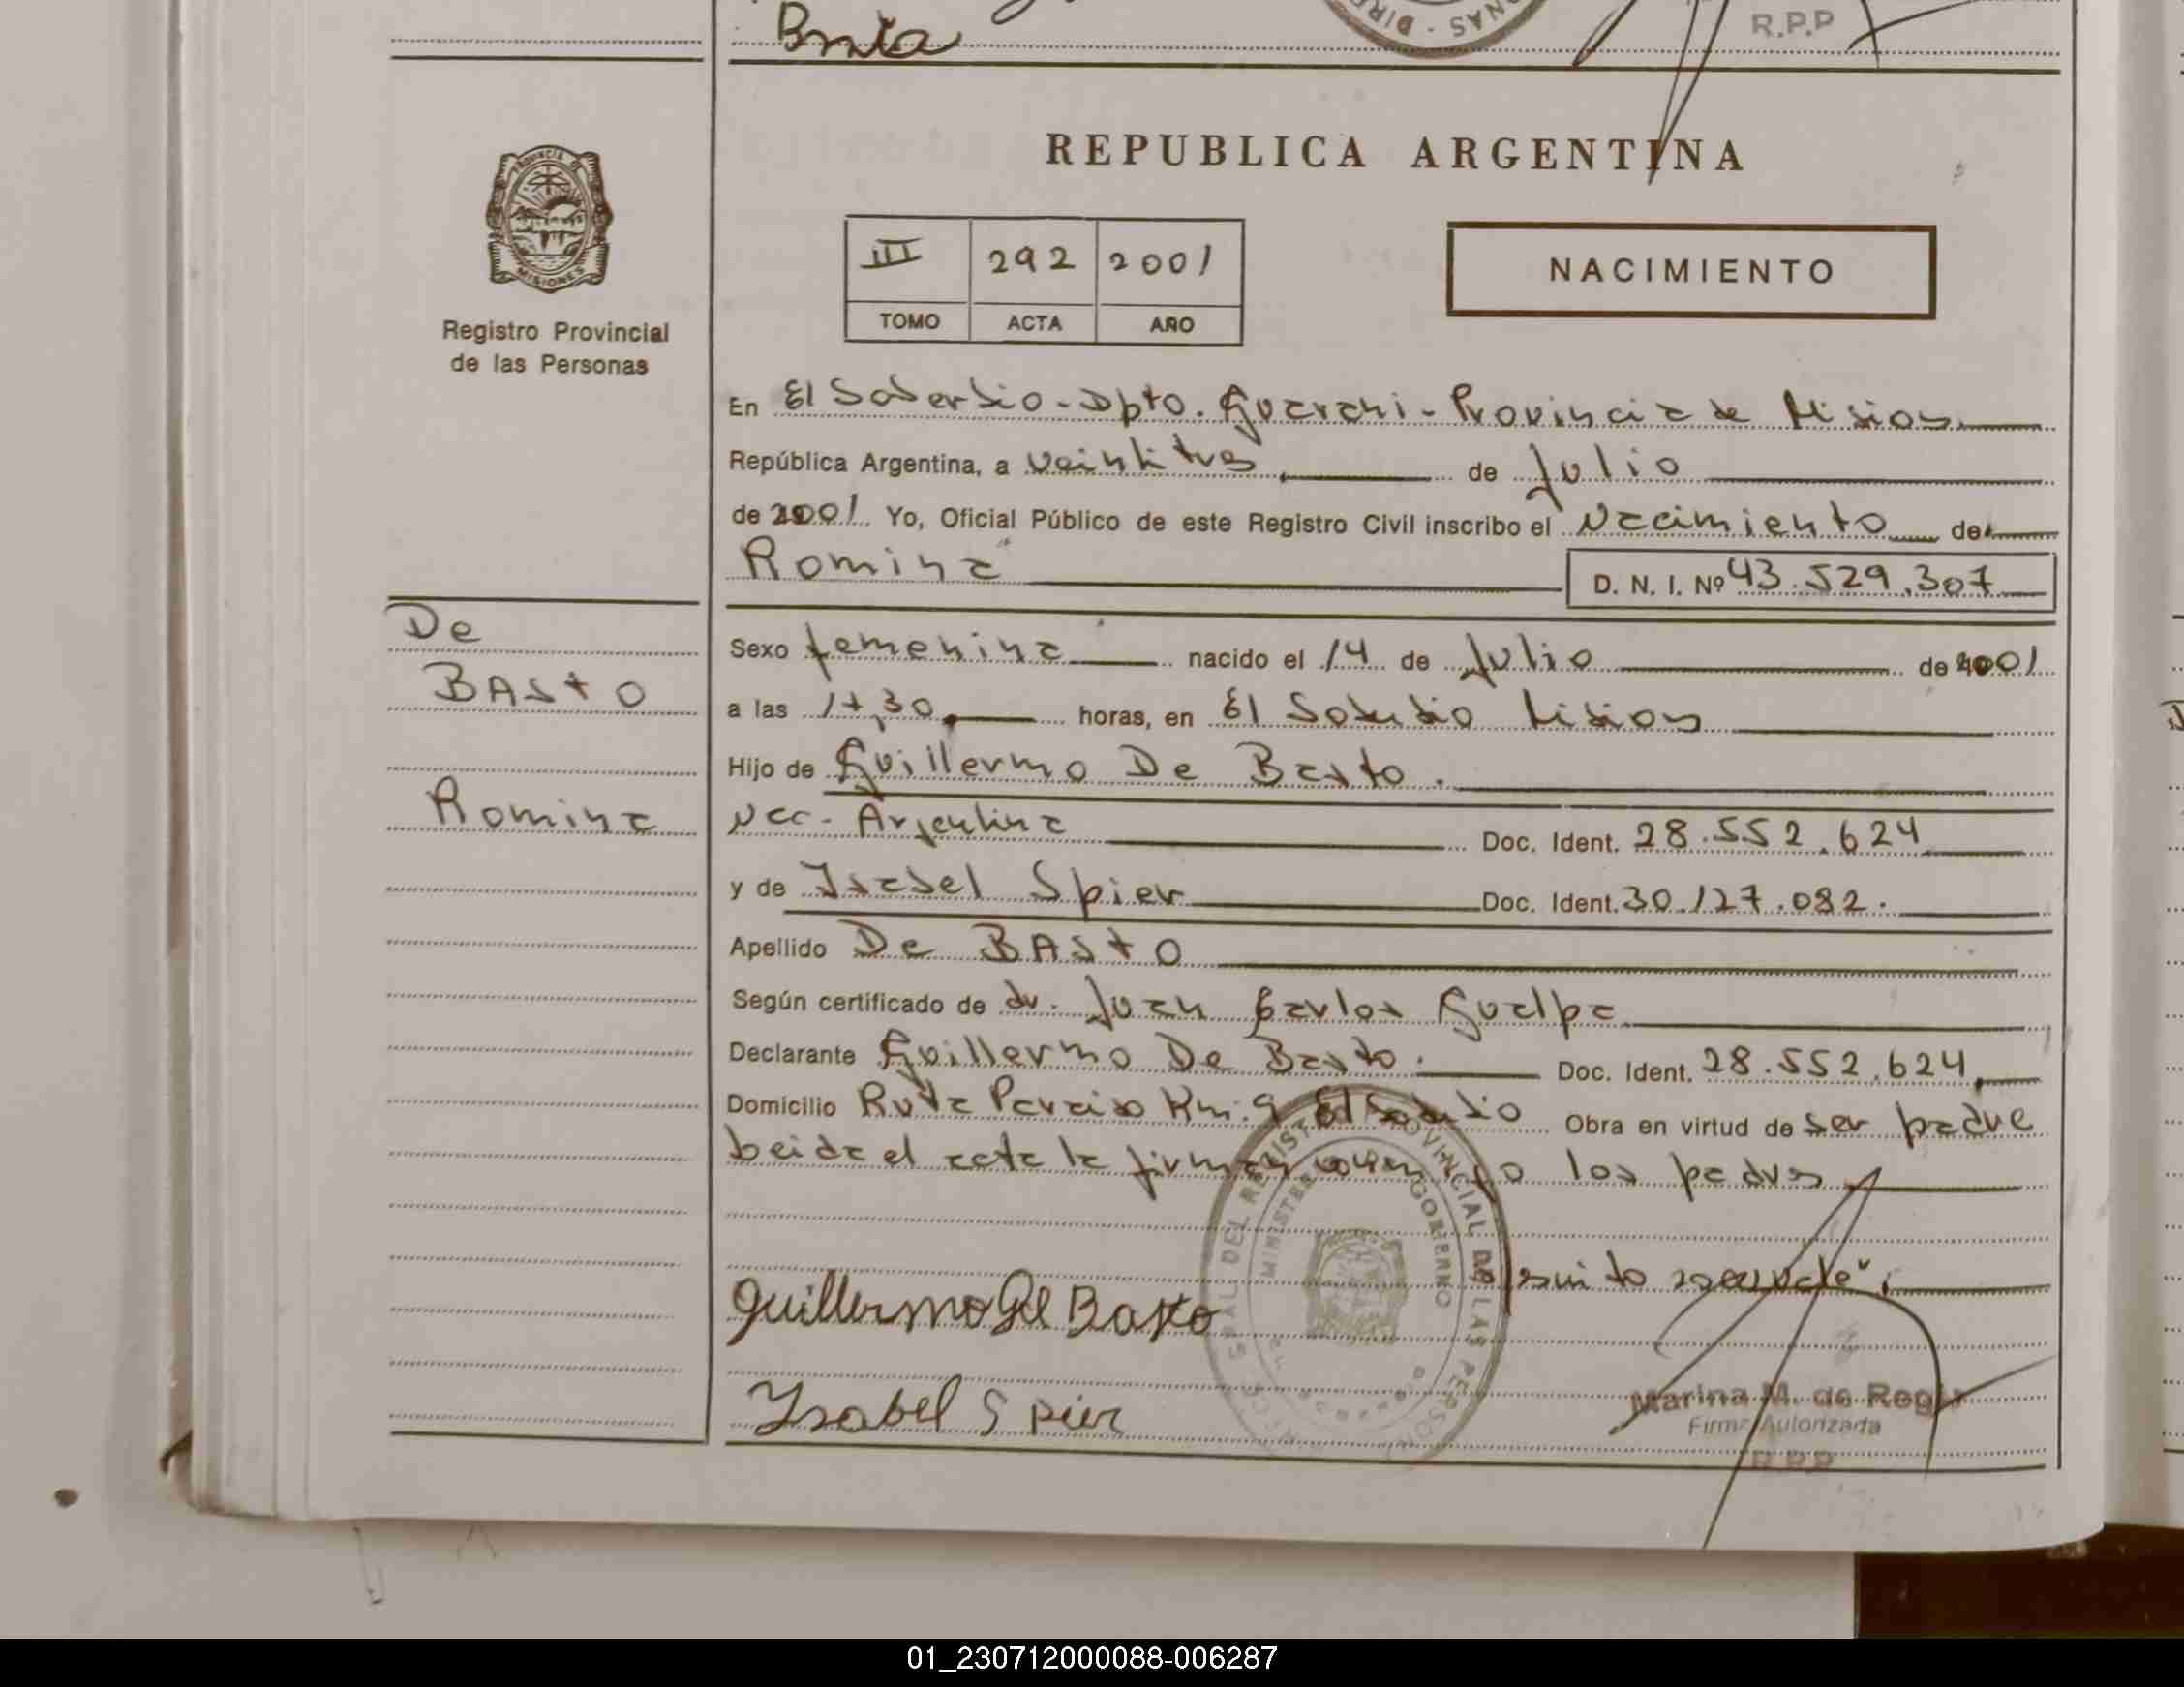 Bnta
DIRE
NAS
R.P.P
PROVINCIA DE
MISIONES
Registro Provincial
de las Personas
REPUBLICA ARGENTINA
III 292 2001
TOMO ACTA AÑO
NACIMIENTO
En El Soberbio - Dpto. Guarani - Provincia de Misiones
República Argentina, a veintitres de Julio
de 2001. Yo, Oficial Público de este Registro Civil inscribo el Nacimiento de
Romina D. N. I. Nº 43.529.307
De
BAsto
Romina
Sexo femenina nacido el 14 de Julio de 2001
a las 17,30 horas, en El Soberbio Misiones
Hijo de Guillermo De Basto.
Nac. Argentina Doc. Ident. 28.552.624
y de Isabel Spier Doc. Ident. 30.127.082.
Apellido De BAsto
Según certificado de dr. Juan Carlos Gualpa
Declarante Guillermo De Basto. Doc. Ident. 28.552.624
Domicilio Ruta Paraiso Km. 9 El Soberbio Obra en virtud de ser padre
Leida el acta la firman conmigo los padres
Guillermo De Basto
Ysabel Spier
DEL REGISTRO PROVINCIAL DE LAS PERSON
MINISTER GOBIERNO
Marina M. de Regis
Firma Autorizada
R.P.P
01_230712000088-006287